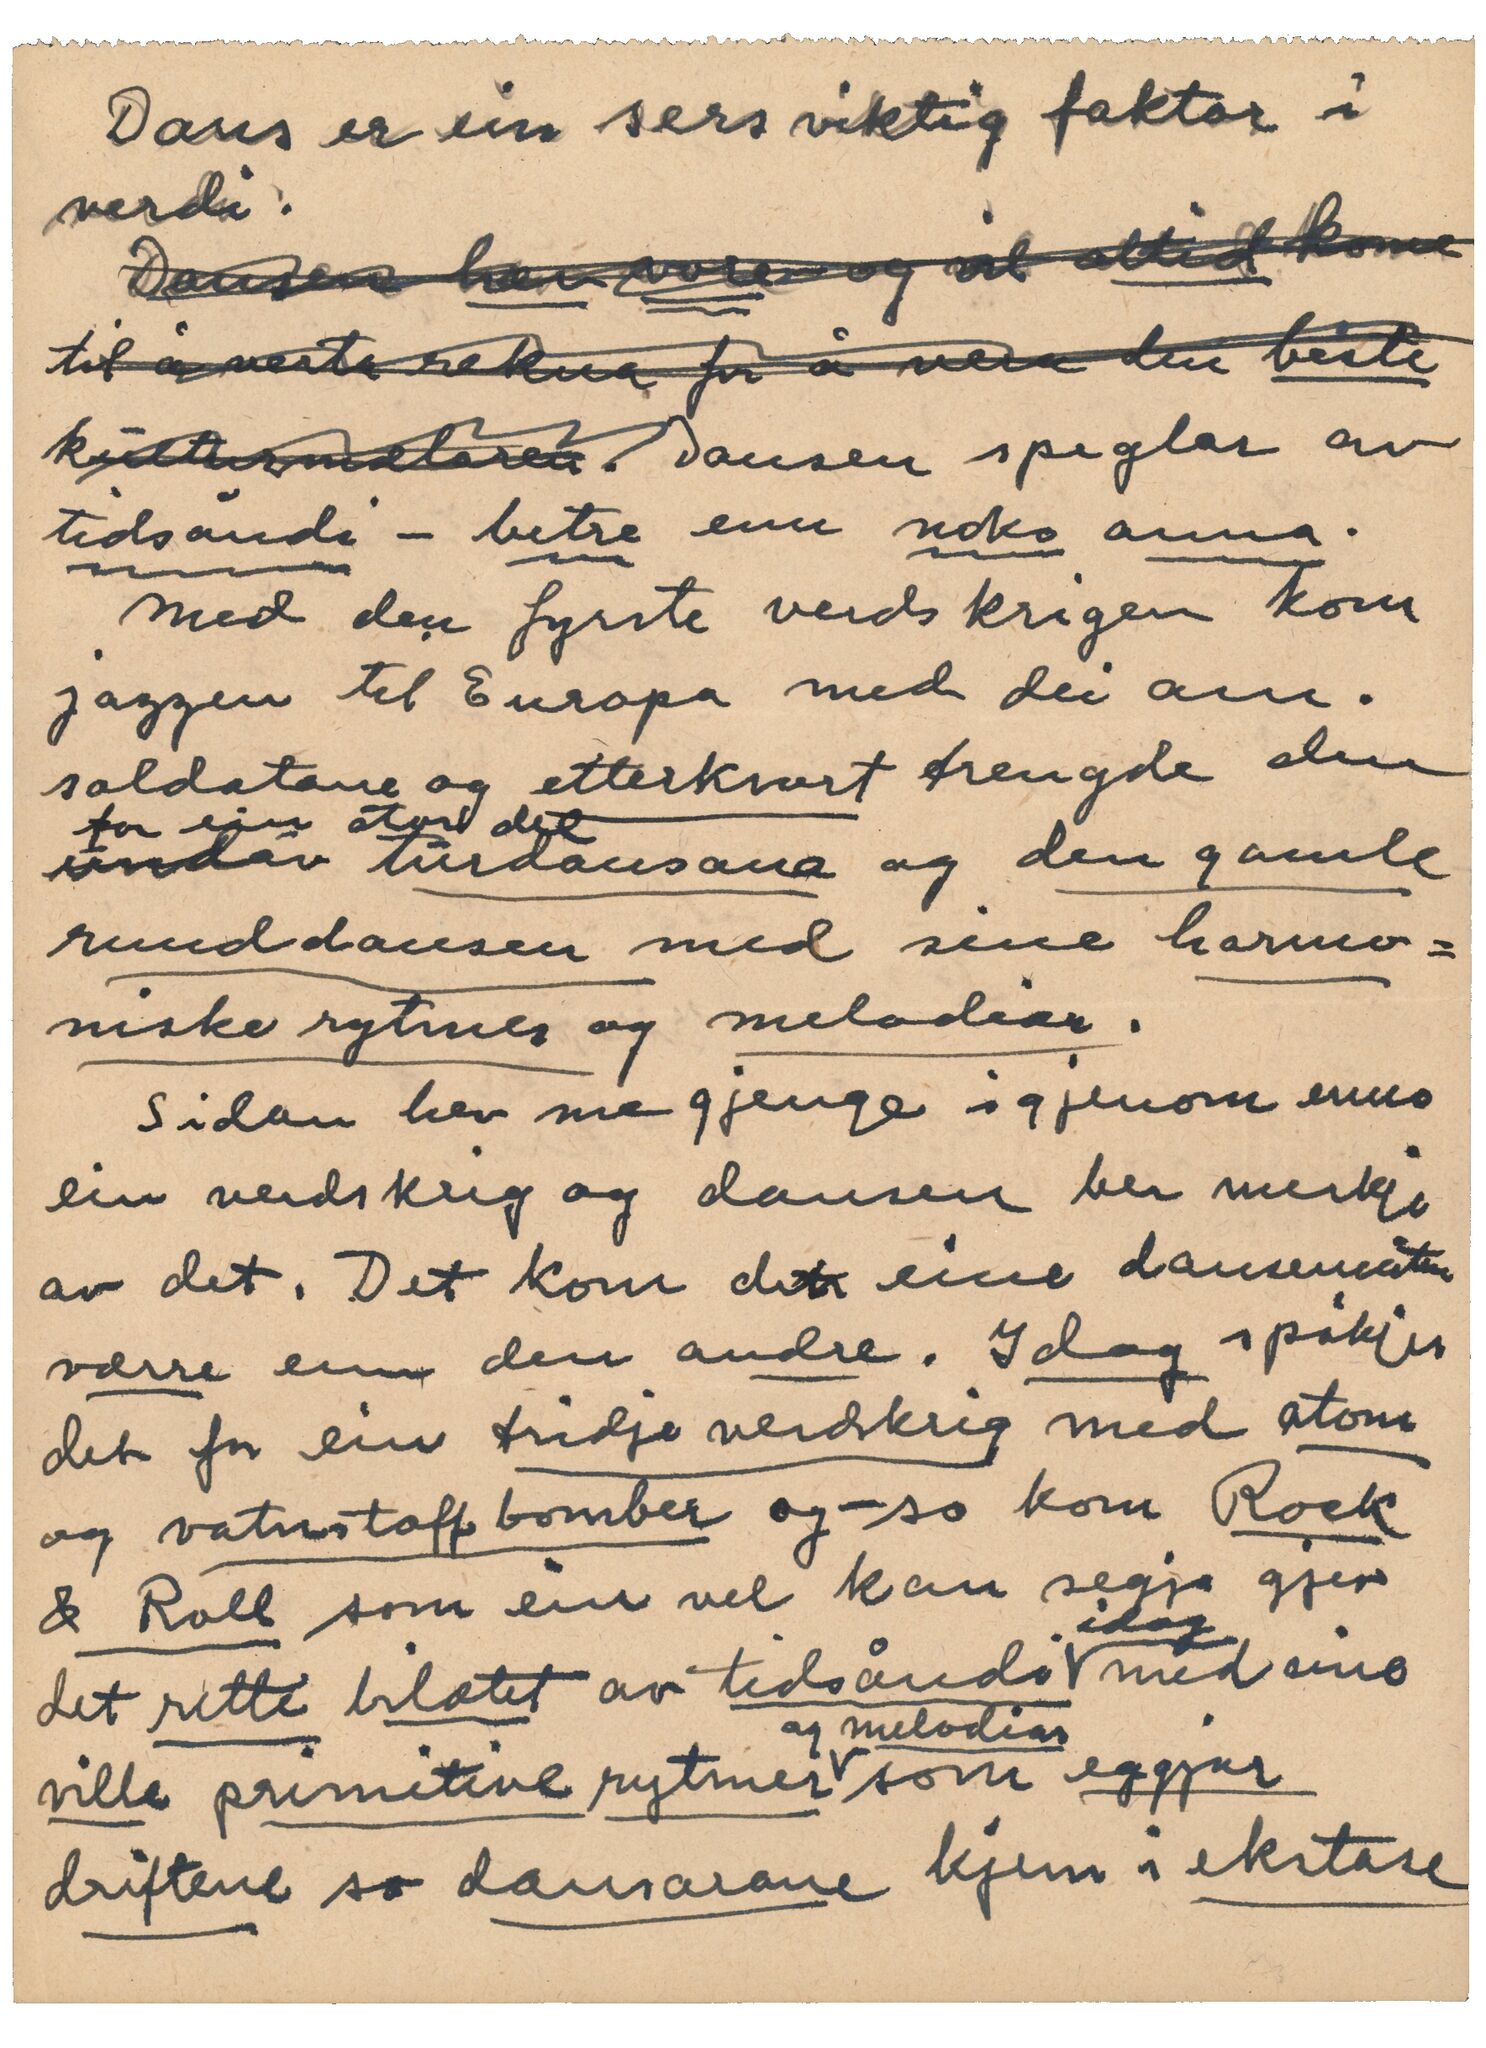 Dans er ein sers viktig faktor i
verdi.
Dansen hev vore og vil altid kome
til å verta rekna for å vera den beste
kulturmælaren. Dansen speglar av
tidsåndi - betre enn noko anna.
Med den fyrste verdskrigen kom
jazzen til Europa med dei am.
soldatane og etterkvart trengde den
for ein stor del
undav turdansana og den gamle
runddansen med sine harmo=
niske rytmer og melodiar.
Sidan hev me gjenge igjenom enno
ein verdskrig og dansen ber merkje
av det. Det kom den eine dansemåten
værre enn den andre. Idag spøkjer
det for ein tridje verdskrig med atom
og vatnstoffbomber og - so kom Rock
& Roll som ein vel kan segja gjev
idag
det rette bilætet av tidsåndi med sine
og melodiar
ville primitive rytmer som eggjar
driftene so dansarane kjem i ekstase